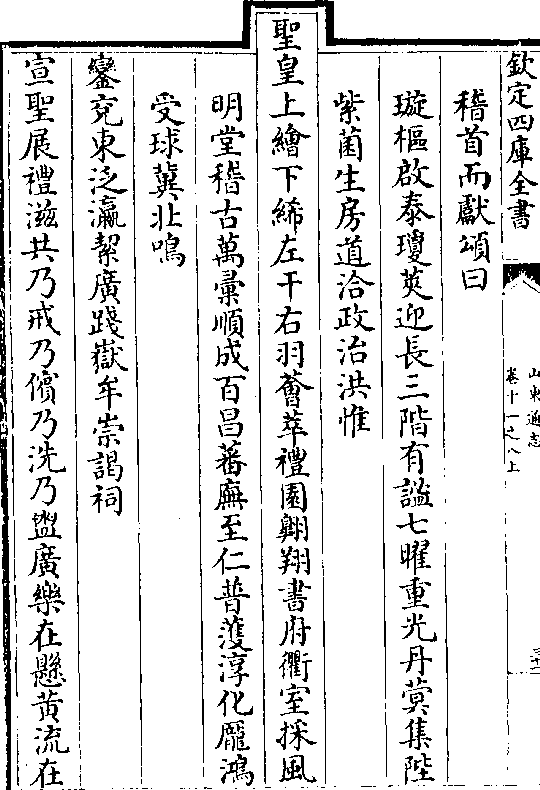 欽定四庫全書
山東通志
卷十一之八上
三十一
稽首而獻頌曰
璇樞啟泰瓊莢迎長三階有謐七曜重光丹蓂集陛
紫菌生房道洽政治洪惟
聖皇上繪下絺左干右羽薈萃禮園翺翔書府衢室採風
明堂稽古萬彚順成百昌蕃廡至仁普濩淳化龎鴻
受球冀壯鳴
鑾兖東泛瀛絜廣踐嶽牟崇謁祠
宣聖展禮滋共乃戒乃儐乃洗乃盥廣樂在懸黄流在